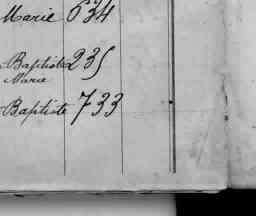 Marie 634
Baptiste 235
Marie
Baptiste 733